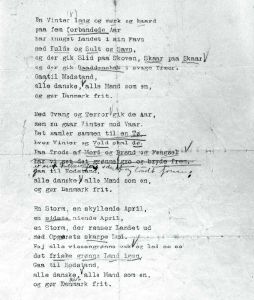 En Vinter lang og mørk og haard
paa fem forbandede Aar
har knuget Landet i sin Favn
med Kulde og Sult og Savn,
og der gik Slid paa Skoven, Skaar paa Skaar
og der gik i svage Træer.
Gaa til Modstand,
alle danske, alle Mand som en,
og gør Danmark frit.
Med Tvang og Terror gik de Aar,
men nu gaar Vinter mod Vaar.
Det samler sammen til en Tø,
hver Vinter og Vold skal dø.
Paa Trods af Mord og Brand og Fængsel
har vi set det grønne gro og bryde frem,
Gaa til Modstand,
alle danske, alle Mand som en,
og gør Danmark frit.
En Storm, en skyllende April,
en niende April,
en Storm, der renser Landet ud
med Oprørets skarpe Lud.
det friske grønne Land igen.
Gaa til Modstand,
alle danske, alle Mand som en,
og gør Danmark frit.